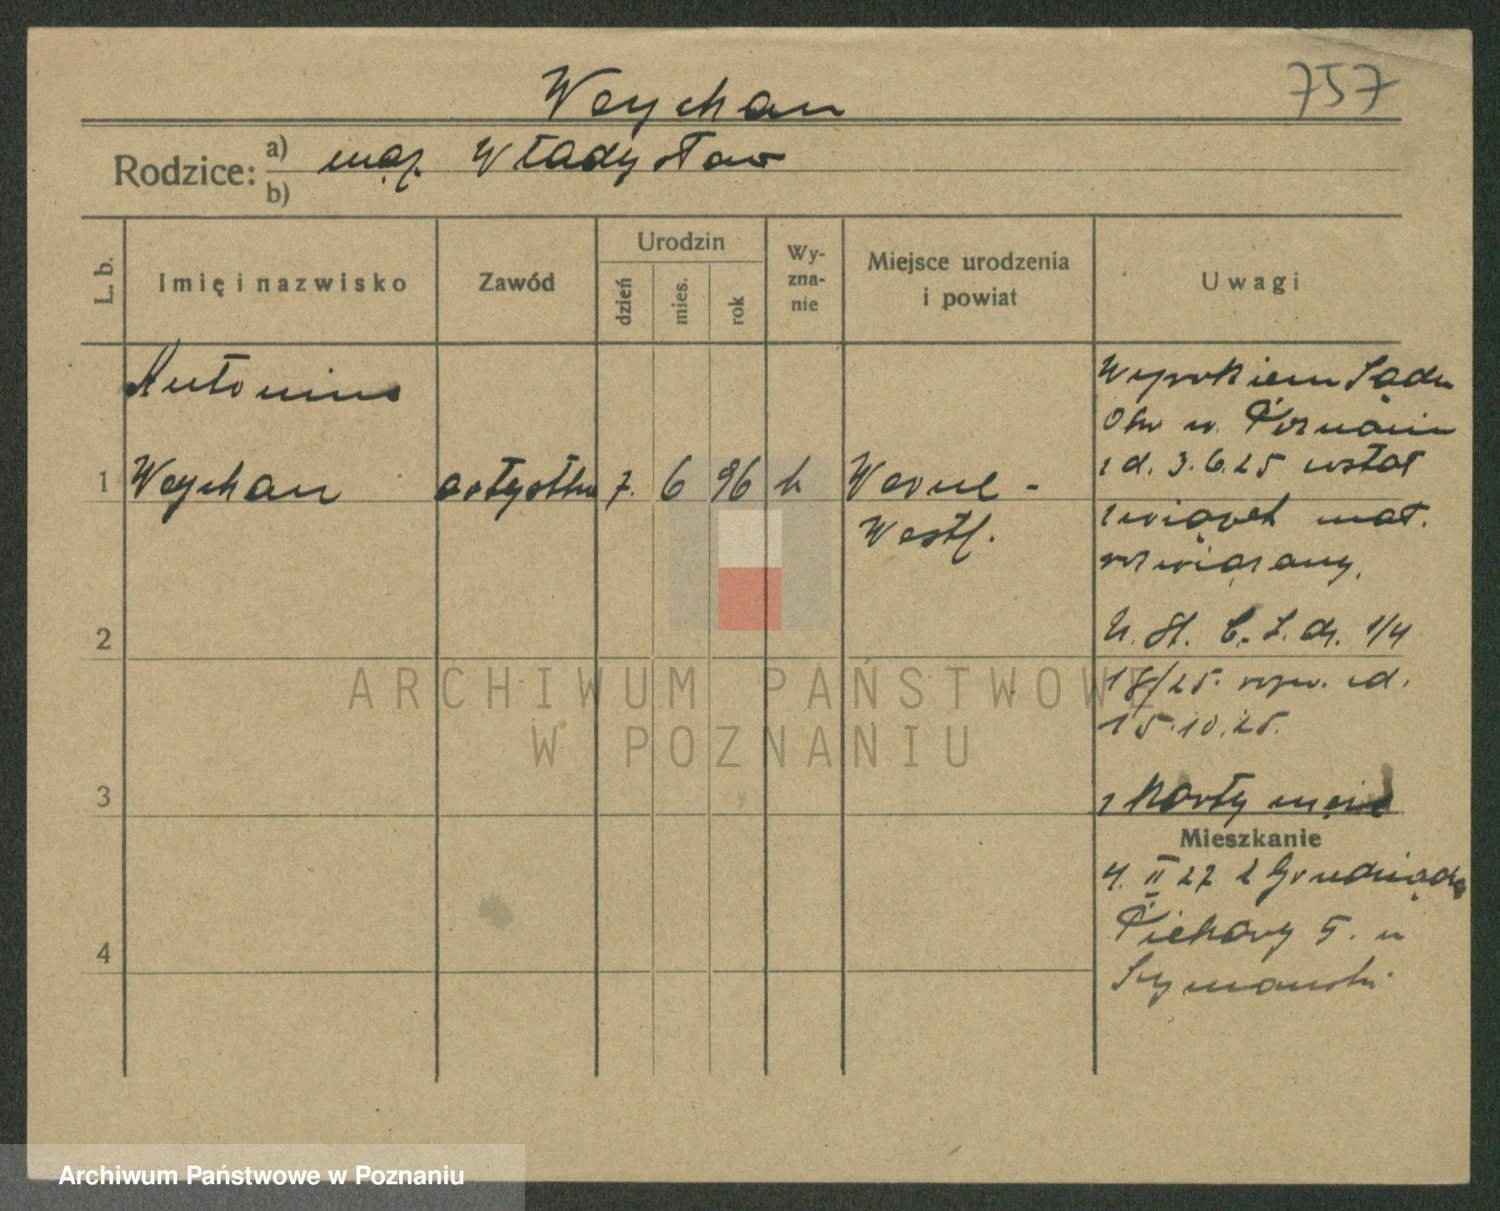 757
Weychan
Rodzice: a) mąż. Władysław
b)
L. b.
Imię i nazwisko
Zawód
Urodzin
dzień
mies.
rok
Wy-
zna-
nie
Miejsce urodzenia
i powiat
Uwagi
Antonina
1 Weychan artystka 7. 6 96 k Werne -
Westf.
Wyrokiem Sądu
Okr w. Poznaniu
z d. 3.6.25 został
związek mał.
rozwiązany.
2
U. St. C. L. dz. 1/4
18/25. z d.
15.10.25.
3
z karty męża
Mieszkanie
4. II 27 z Grudziądza
Piekary 5. u
4
Szymański
ARCHIWUM PAŃSTWOWE
W POZNANIU
Archiwum Państwowe w Poznaniu